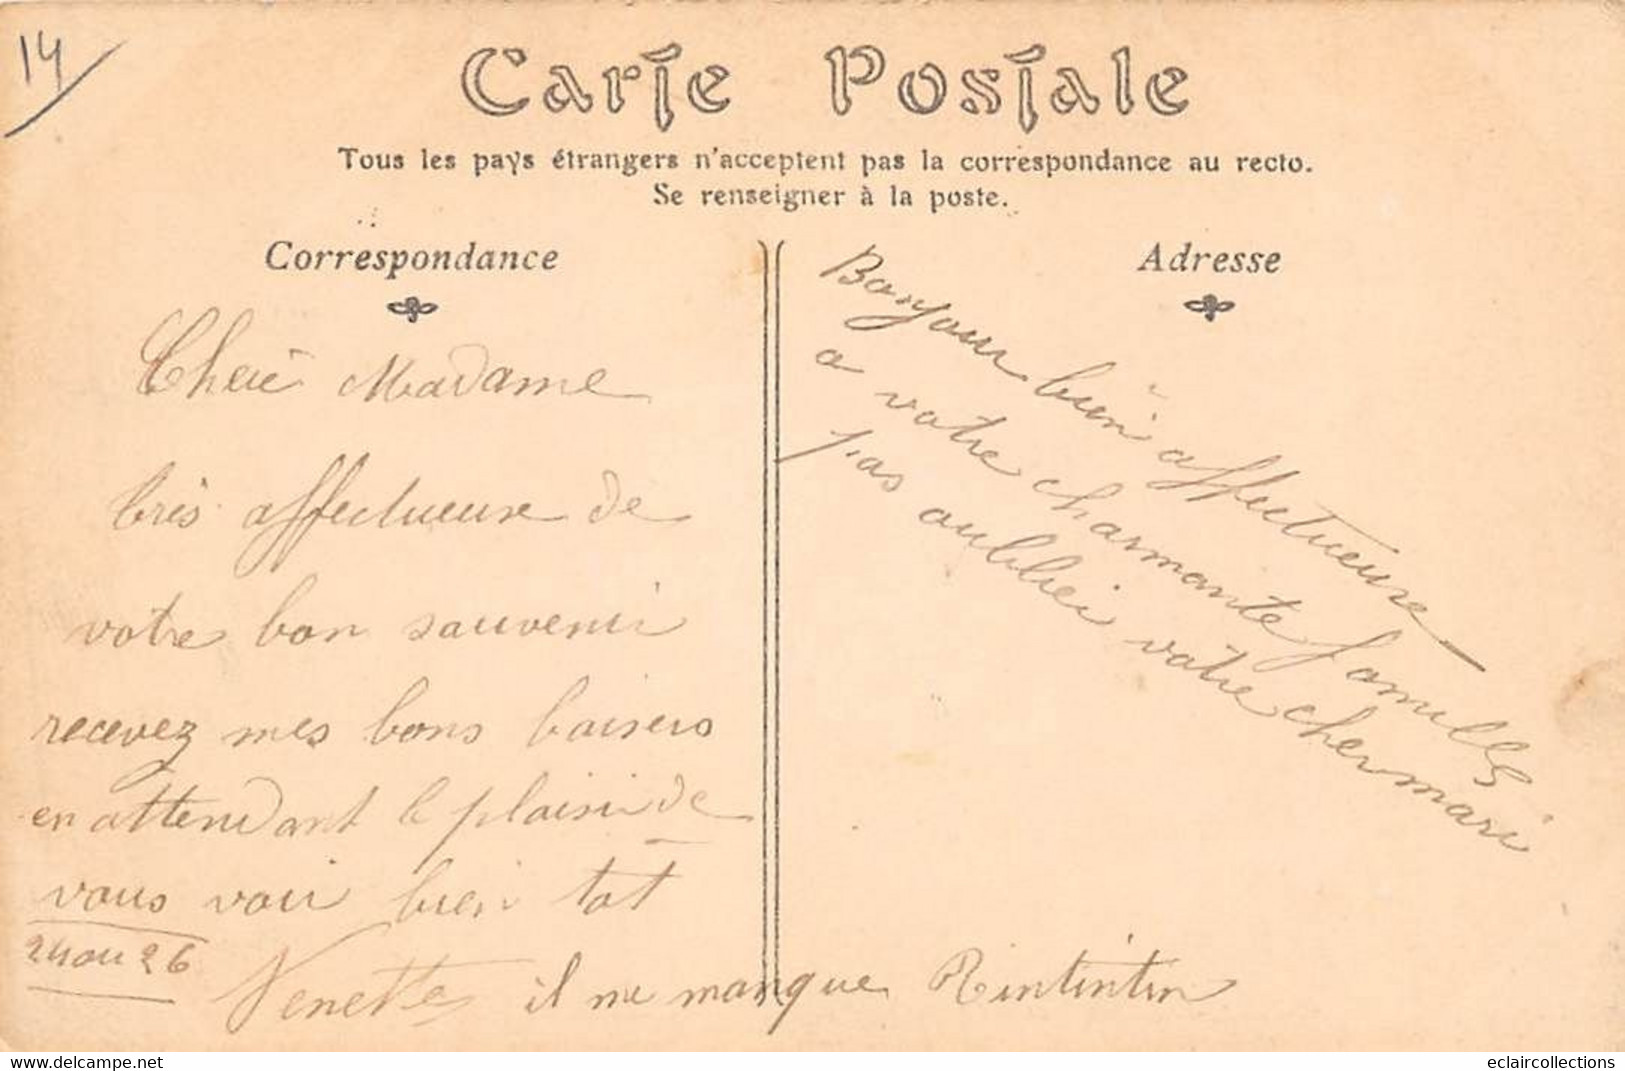 14
Carte Postale
Tous les pays étrangers n'acceptent pas la correspondance au recto.
Se renseigner à la poste.
Correspondance
Adresse
Cheie Madame
très affectueuse de
votre bon souvenir
recevez mes bons baisers
en attendant le plaisir de
vous voir bien tot
24 ou 26
Nenette il me manque Rintintin
Bonjour bien affectueuse
a votre charmante famille
pas oublier votre cher mari
delcampe.net
eclaircollections